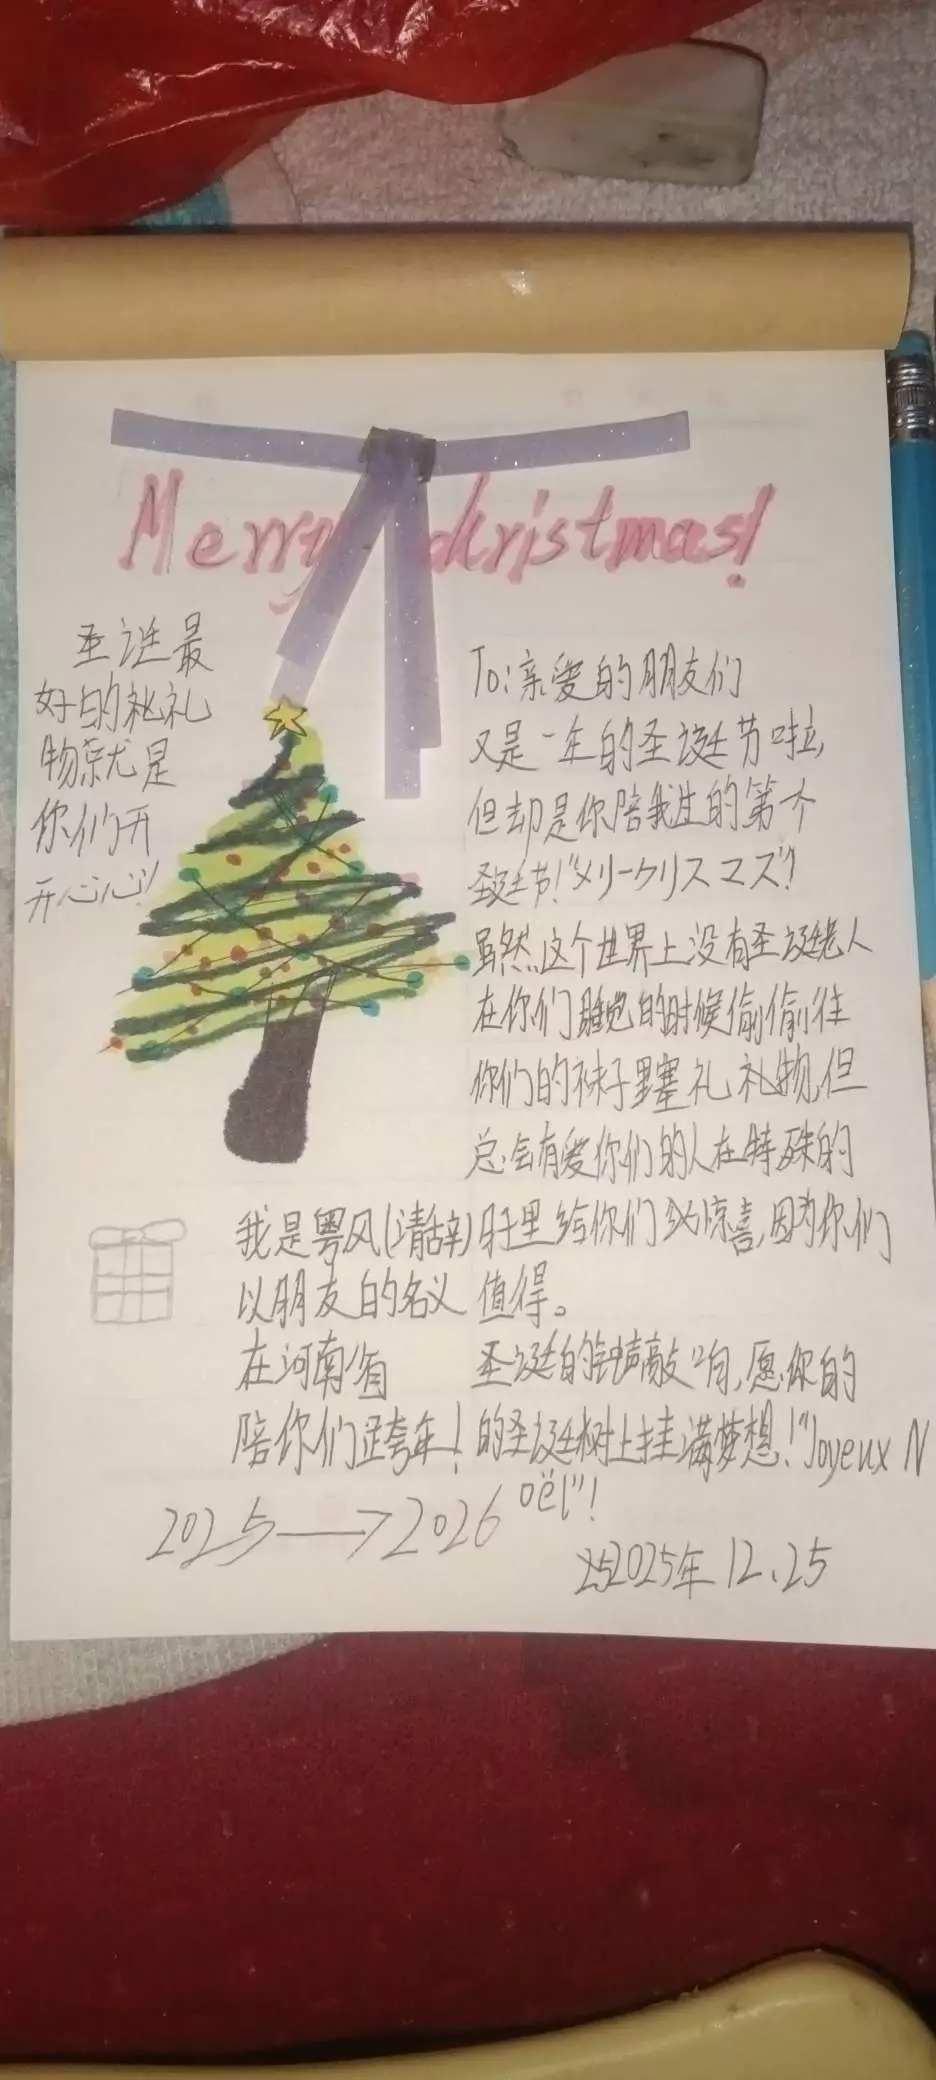 Merry christmas!
圣诞最
好的礼礼
物就是
你们开
开心心!
To:亲爱的朋友们
又是一年的圣诞节啦,
但却是你陪我过的第一个
圣诞节!"メリークリスマス"!
虽然这个世界上没有圣诞老人
在你们睡觉的时候偷偷往
你们的袜子里塞礼礼物,但
总会有爱你们的人在特殊的
日子里给你们惊喜,因为你们
值得。
圣诞的钟声敲响,愿你的
的圣诞树上挂满梦想!"Joyeux N
oël"!
2025年12.25
我是粤风(清辞)
以朋友的名义
在河南省
陪你们跨年!
2025→2026